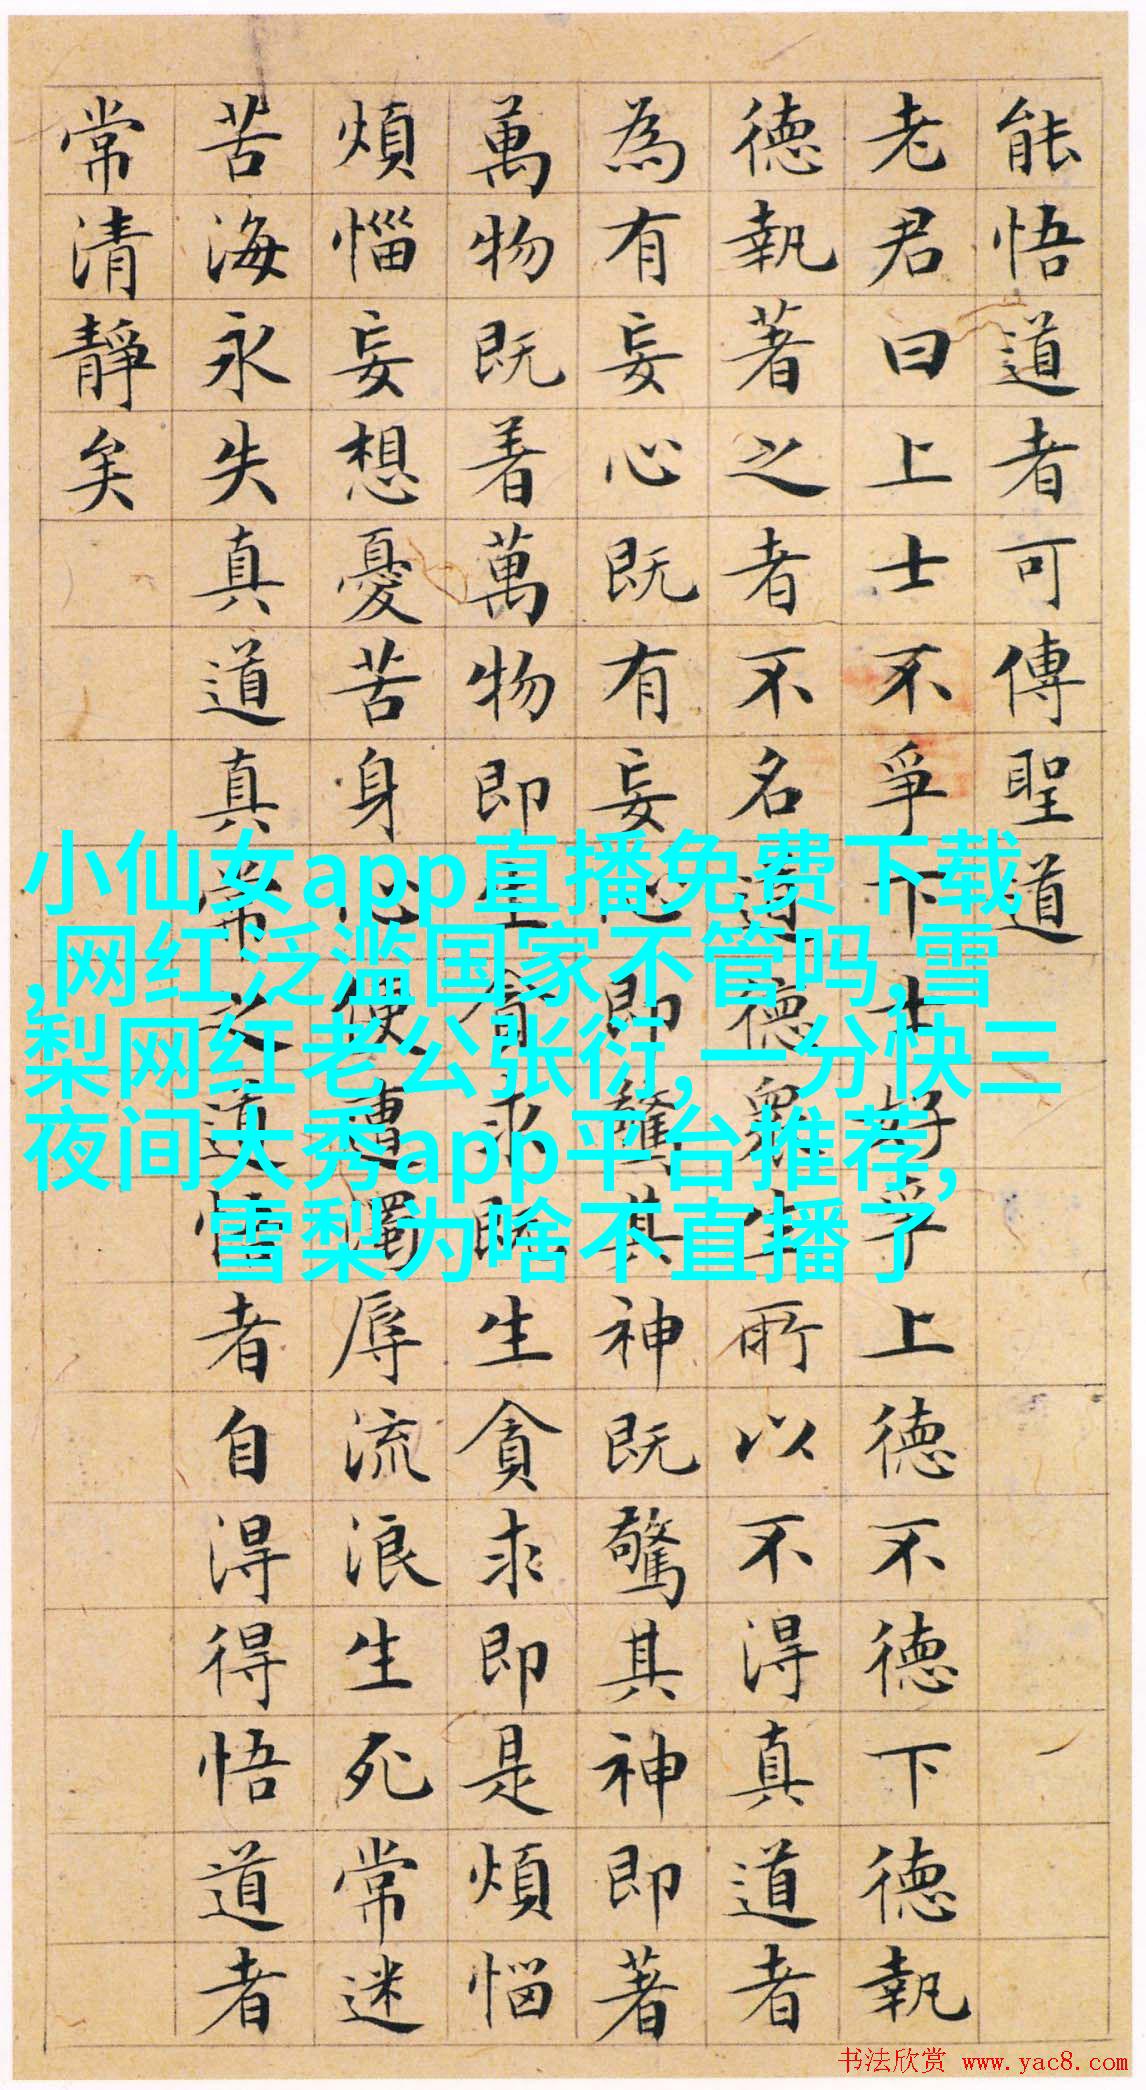 能悟道者可傳聖道
老君曰上士不爭下士好爭上德不德下德執
德執著之者不名道德眾生所以不得真道者
為有妄心既有妄心即驚其神既驚其神即著
萬物既着萬物即生貪求既生貪求即是煩惱
煩惱妄想憂苦身心便遭濁辱流浪生死常迷
苦海永失真道真常之道悟者自淂得悟道者
常清靜矣
小仙女app直播免费下载
,网红泛滥国家不管吗,雪
梨网红老公张衍,一分快三
夜间大秀app平台推荐,
雪梨为啥不直播了
书法欣赏 www.yac8.com